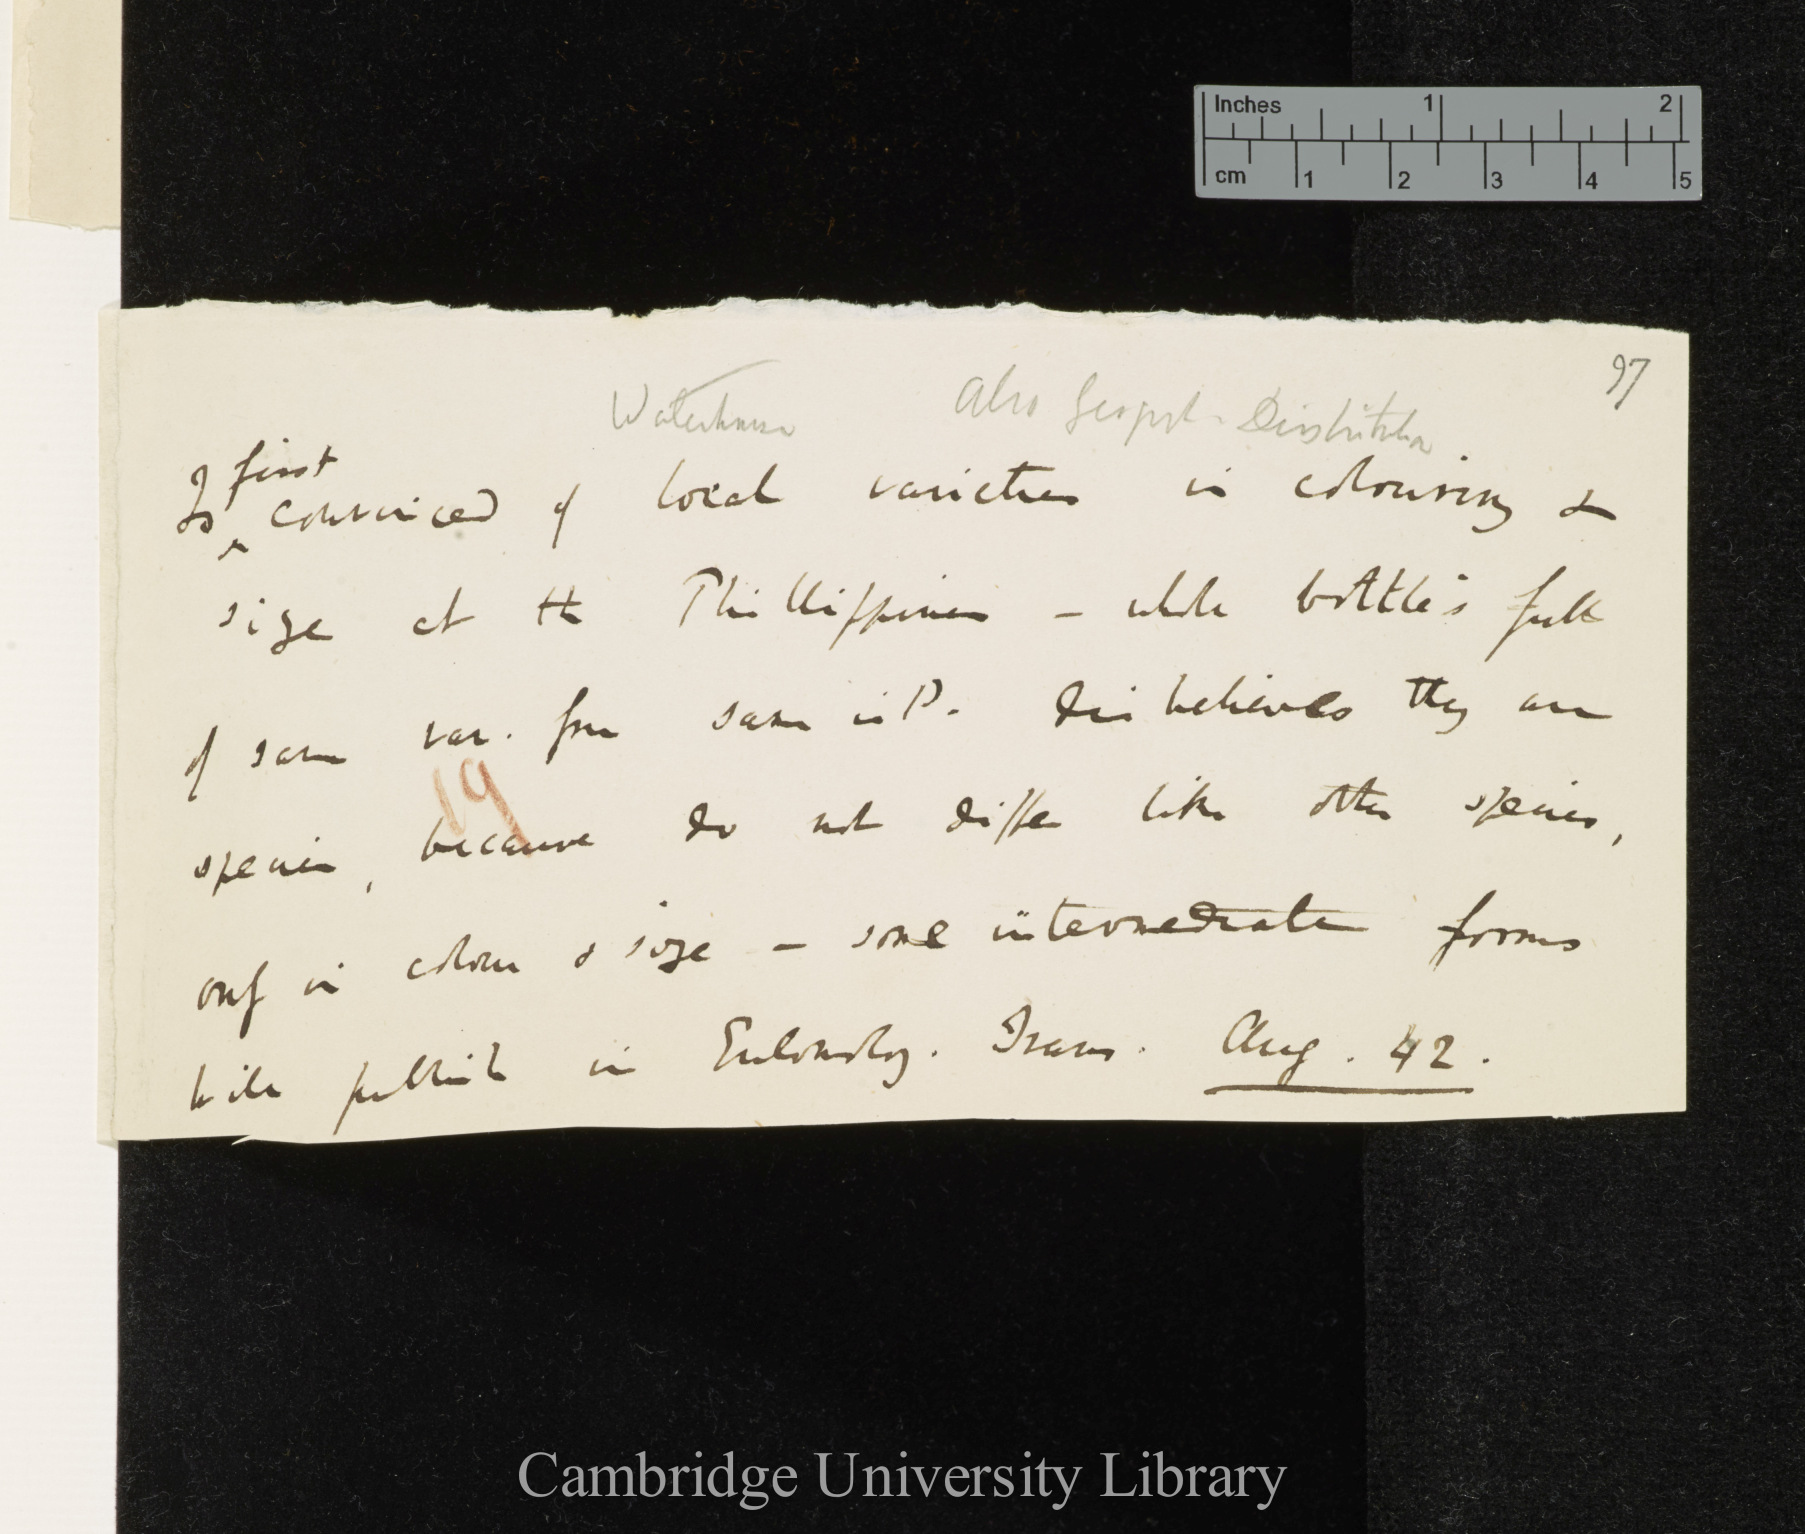 Inches 1 2
cm 1 2 3 4 5
97
Waterhouse Also Geograph. Distribution
Is first convinced of local varieties in colouring &
size at the Phillippines – whole bottles full
of same var. from same in P. disbelieves they are
19
species, because do not differ like other species,
only in colour & size – some intermediate forms
will publish in Entomolog. Trans. Aug. 42.
Cambridge University Library